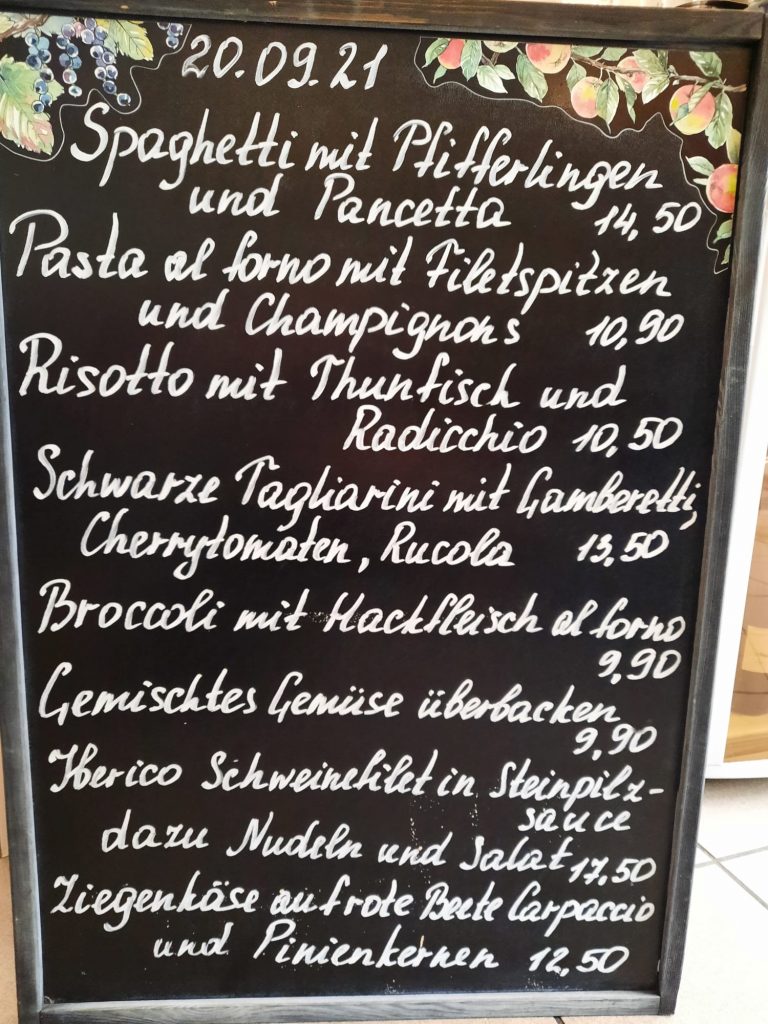 20.09.21
Spaghetti mit Pfifferlingen
und Pancetta 14,50
Pasta al forno mit Filetspitzen
und Champignons 10,90
Risotto mit Thunfisch und
Radicchio 10,50
Schwarze Tagliarini mit Gamberetti,
Cherrytomaten, Rucola 13,50
Broccoli mit Hackfleisch al forno
9,90
Gemischtes Gemüse überbacken
9,90
Iberico Schweinefilet in Steinpilz-
sauce
dazu Nudeln und Salat 17,50
Ziegenkäse auf rote Beete Carpaccio
und Pinienkernen 12,50